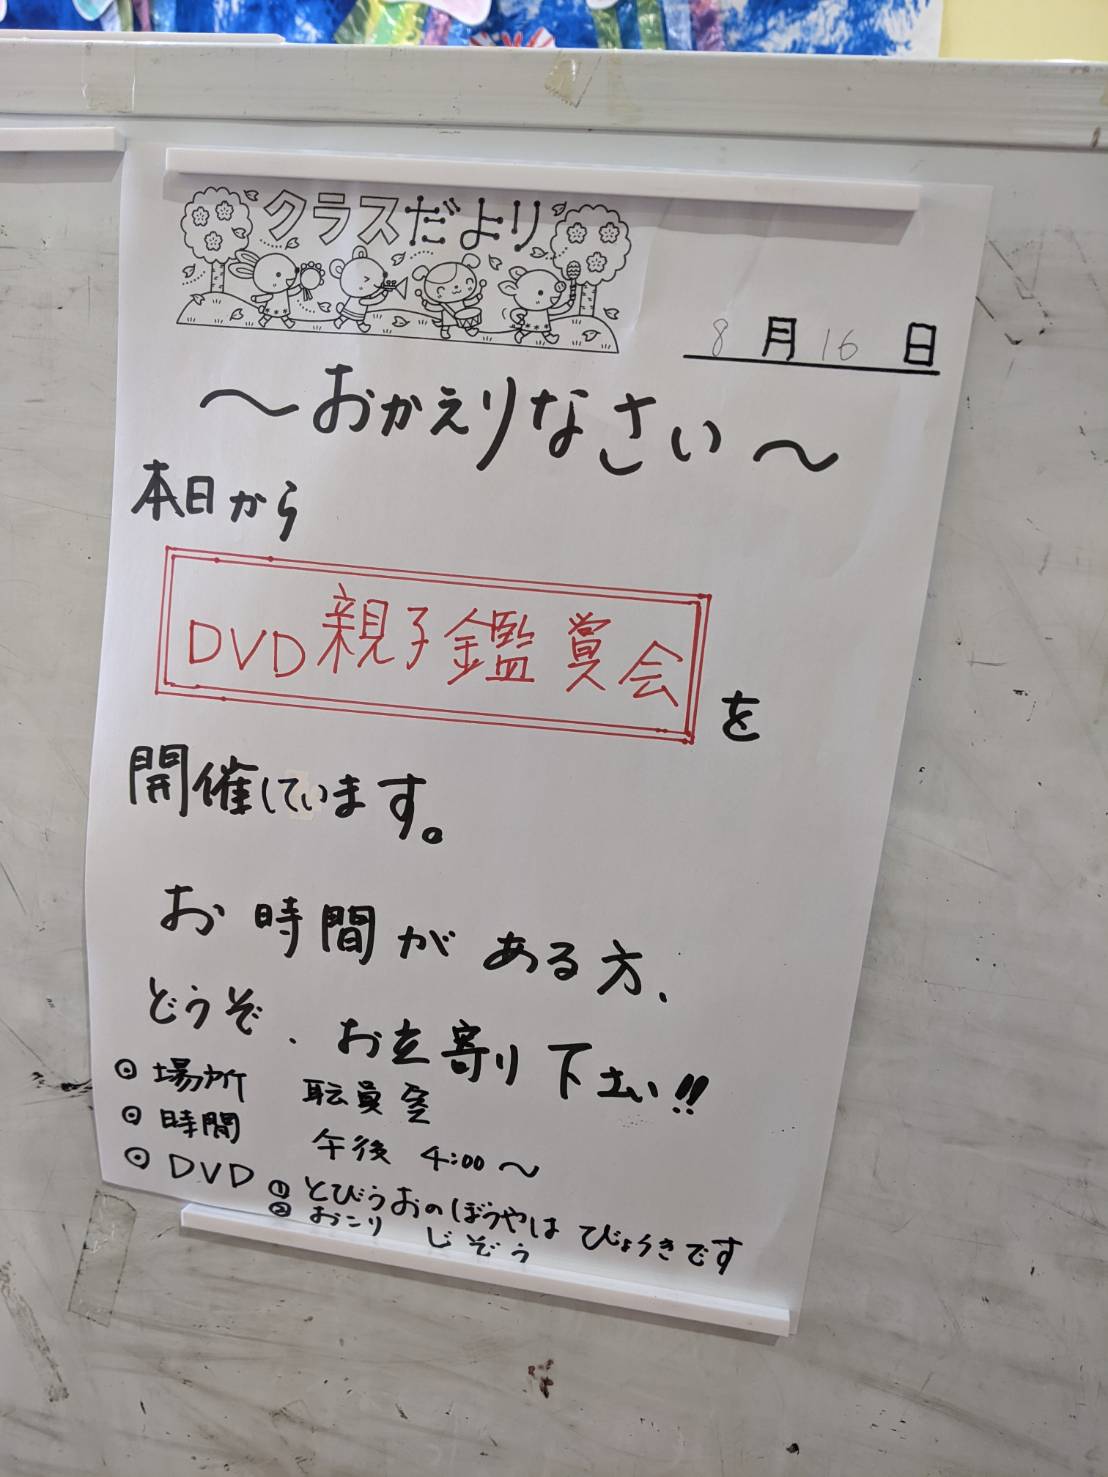 クラスだより
8月16日
～おかえりなさい～
本日から
DVD親子鑑賞会を
開催しています。
お時間がある方、
どうぞ、お立寄り下さい!!
◎場所 職員室
◎時間 午後 4:00～
◎DVD ①とびうおのぼうやはびょうきです
②おこりじぞう